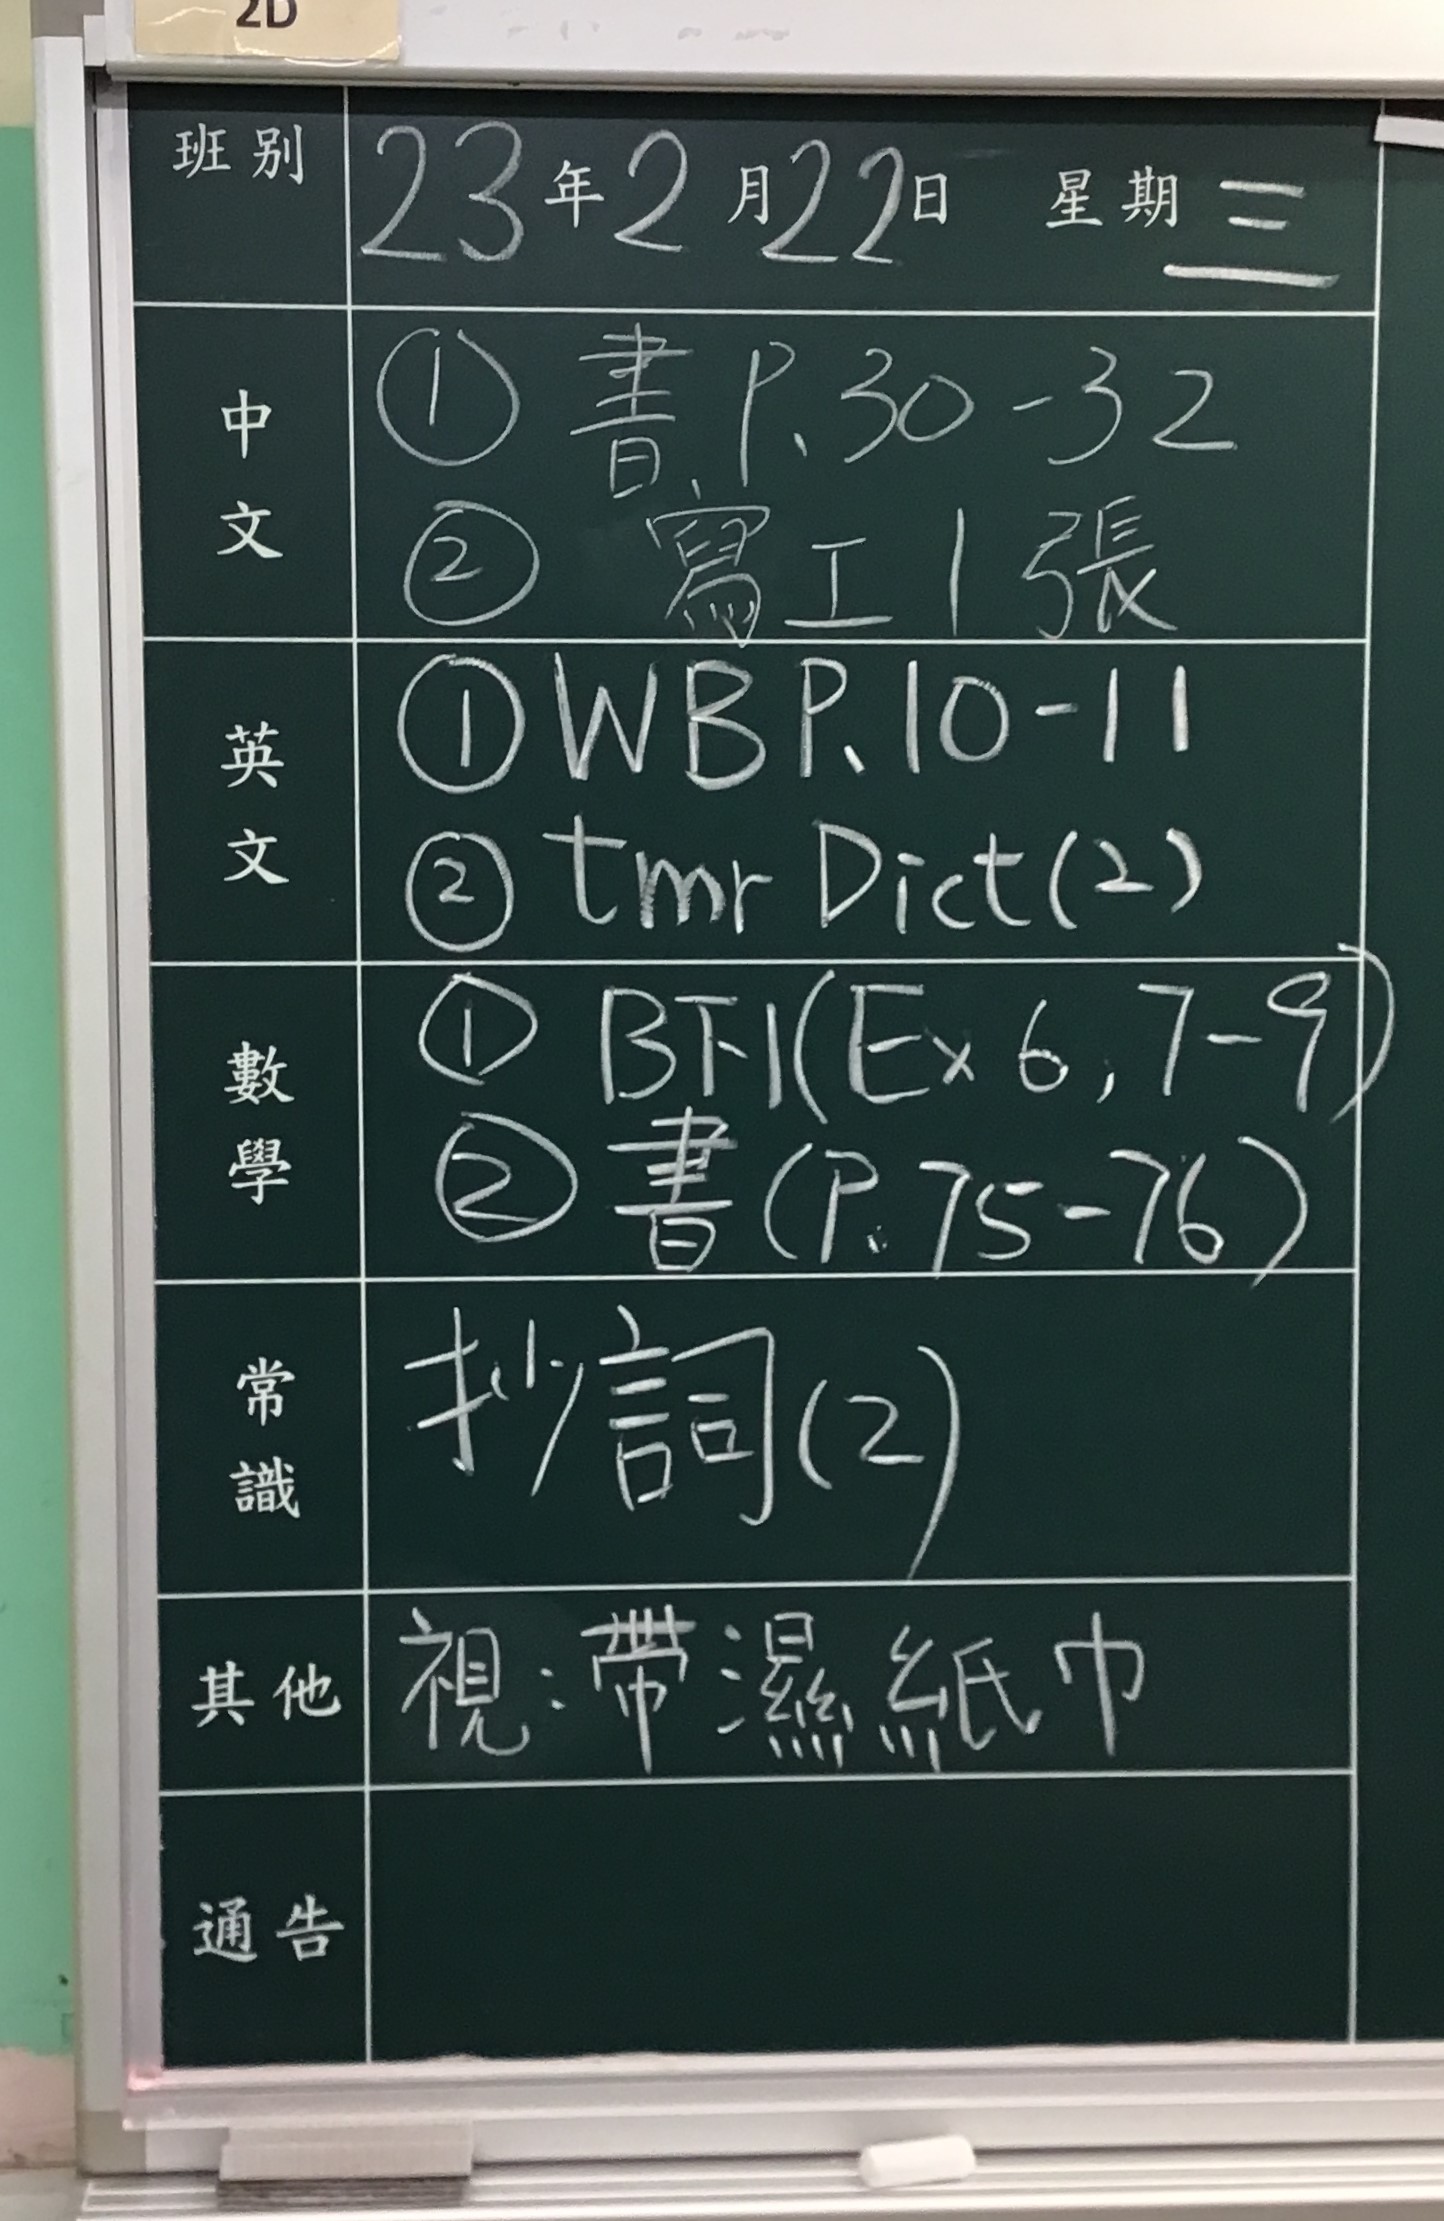 2D
班別 23年2月22日 星期三
中文
① 書P.30-32
② 寫工1張
英文
① WB P.10-11
② tmr Dict(2)
數學
① B下1(Ex 6, 7-9)
② 書(P.75-76)
常識
抄詞(2)
其他 視:帶濕紙巾
通告